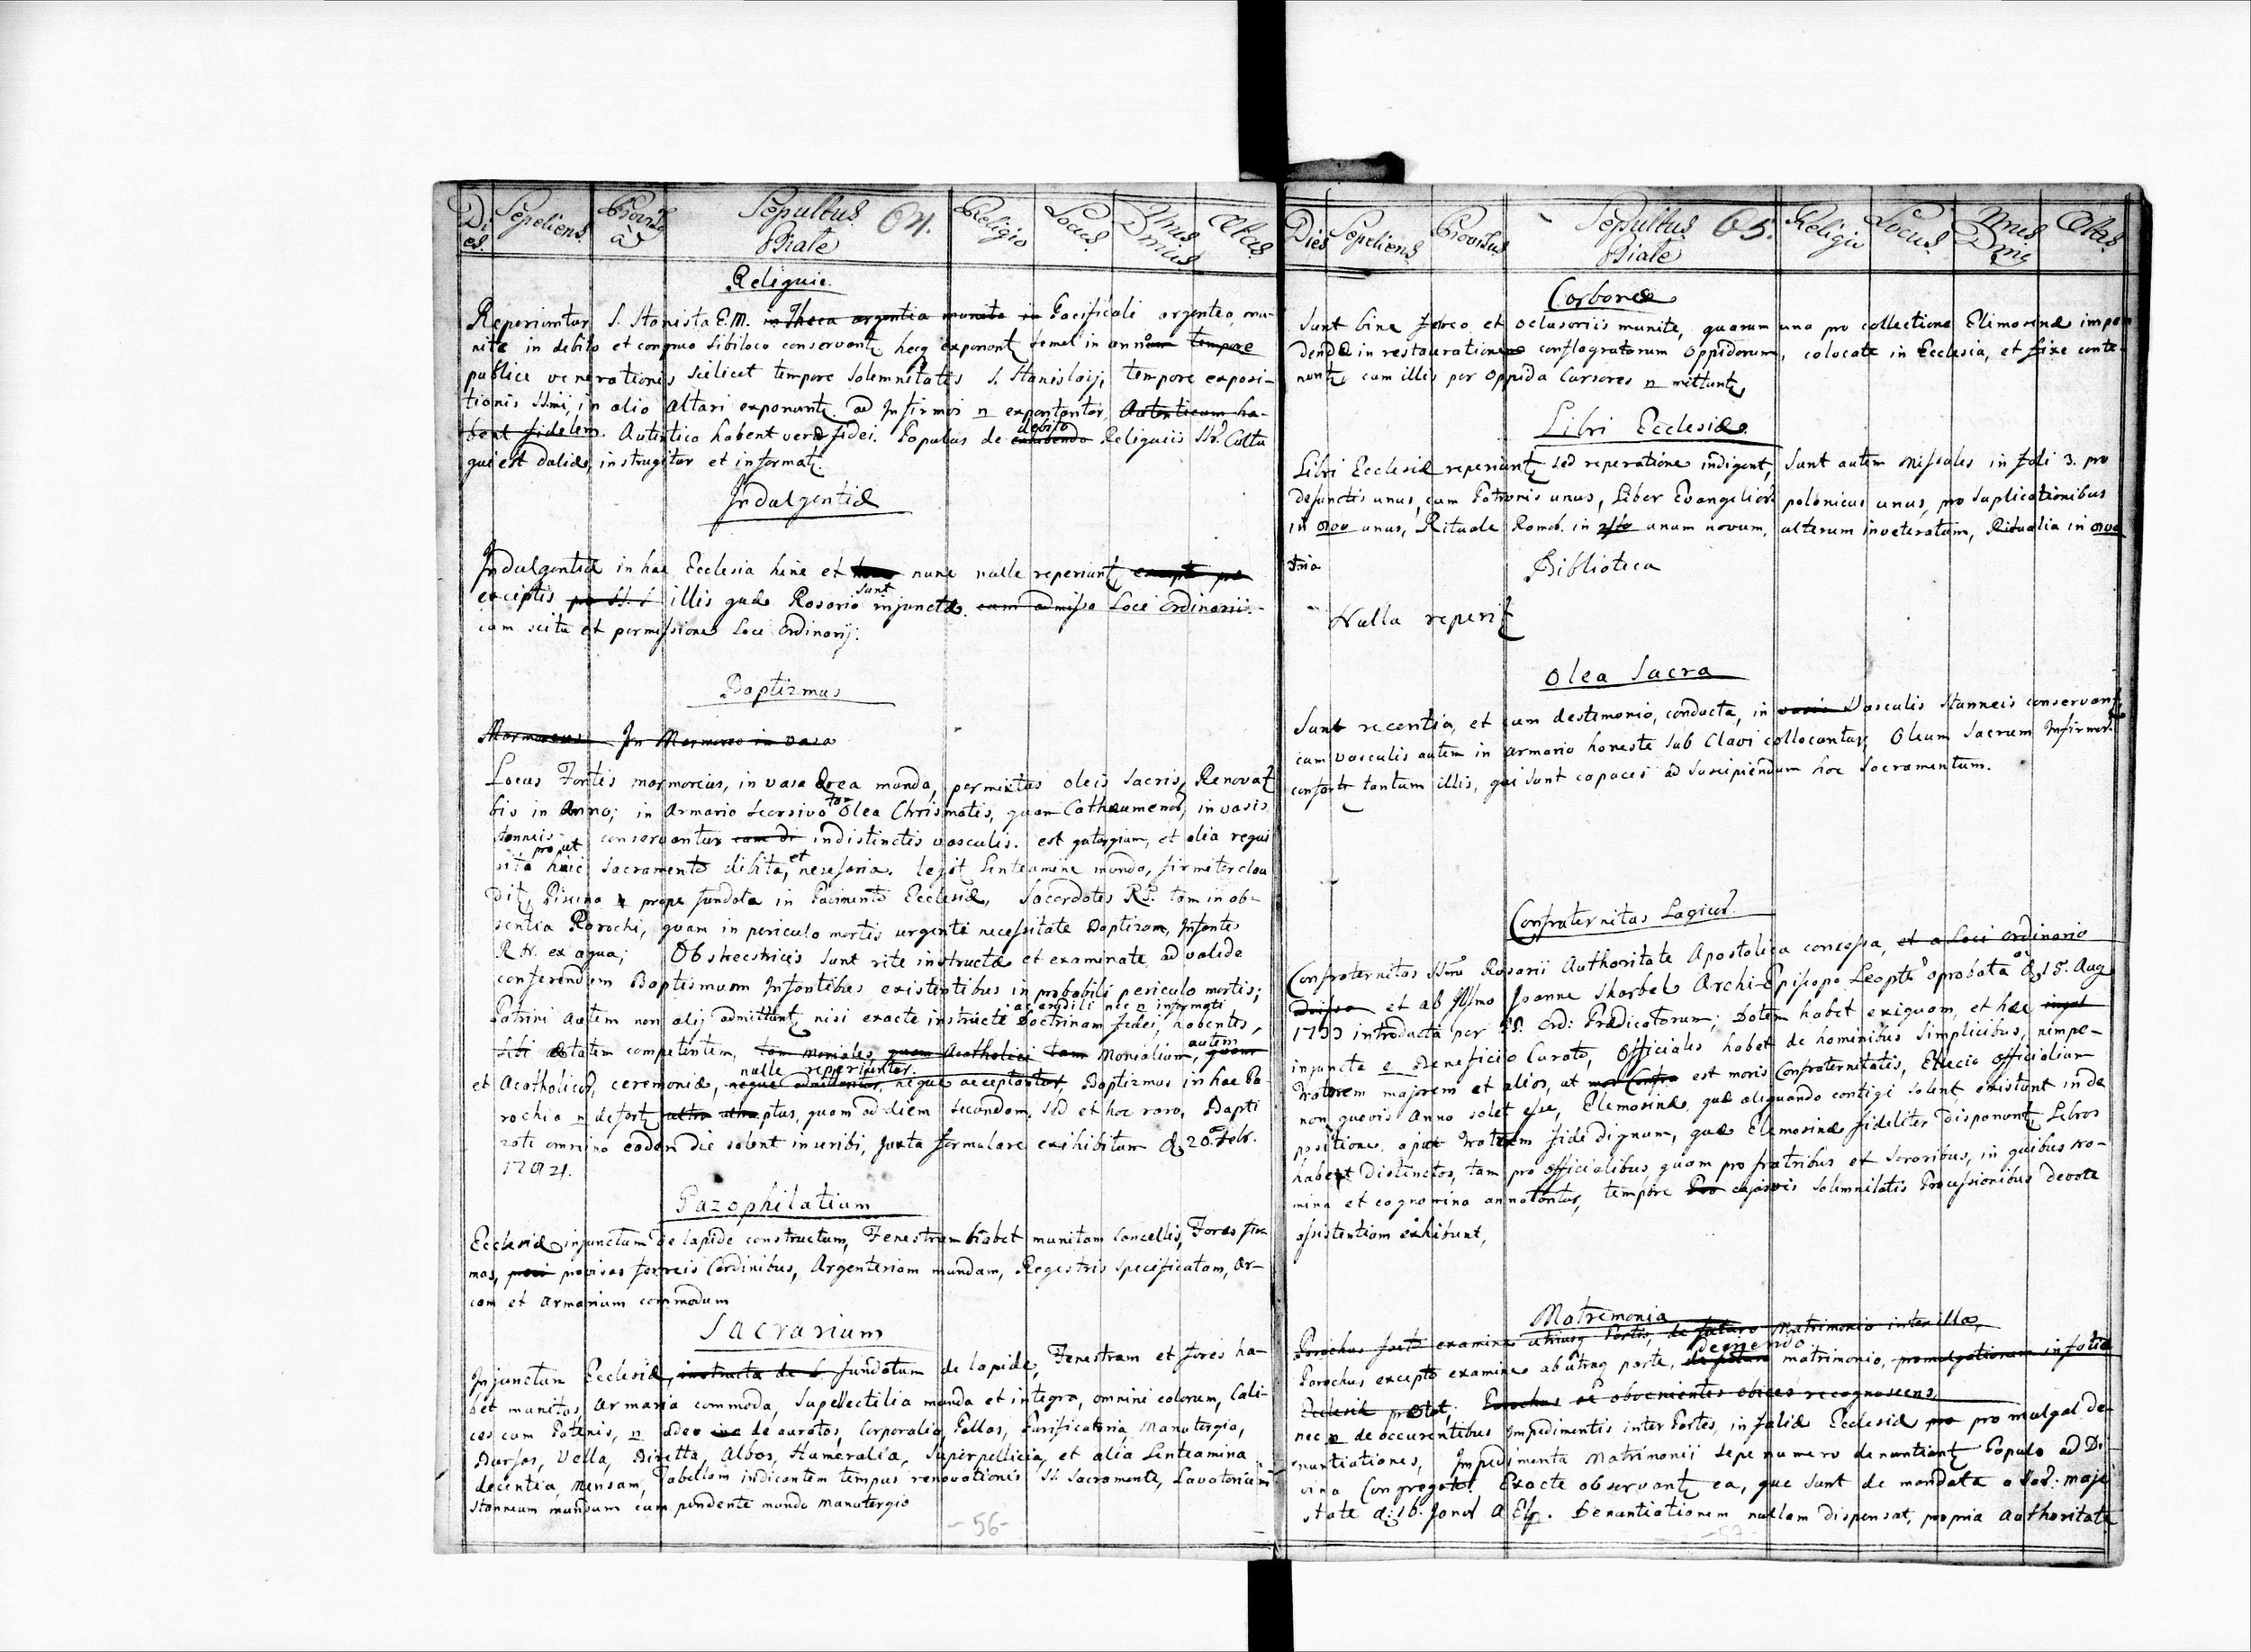 Dies. Sepeliens Provis. à Sepultus 64. Religio Locus. Nrus Dmicus Ætas.
Biale
Reliquie.
Reperiuntur S. Stanisla E.M. in Theca argentia munita in Pacificali argenteo, mu-
nite in debito et congruo sibi loco conservantz hecq exponontz semel in annum tempore
publice venerationis scilicet tempore solemnitatis S. Stanislaij, tempore exposi-
tionis SSmi, in alio altari exponuntz. ad Infirmos n exportantor, Autenticum ha-
bent fidelem. Autentica habent veræ fidei. Populus de debito exhibendo Reliquiis SSr. Cultu
qui est Duliæ, instrugitur et informatz.
Indulgentiæ
Indulgentiæ in hac Ecclesia hinc et nunc nulle reperiuntz excepte pro
exceptis pro SS. S illis quæ Rosario sunt injunctæ. cum admisso Loci Ordinarii.
cum scitu et permissione Loci Ordinarij.
Baptizmus
Marmoreus In Marmoreo in vasa
Locus Fontis marmoreus, in vasa ærea munda, permixtus oleis sacris, Renovatz
bis in Anno; in Armario secrsivo tam Olea Chrismatis, quam Cathæumenor, in vasis
stanneis conservantur cum di indistinctis vasculis. est guturgium, et alia requi
sita prout huic sacramento dibita, et nesesaria. tegitz linteamine mundo, firmiter clau
ditz, Piscina prope fundata in Pavimento Ecclesiæ, Sacerdotes R.S. tam in ab-
sentia Parochi, quam in periculo mortis urgente necessitate Baptizam, Infantes
R.N. ex aqua; Obsteestricis sunt rite instructæ et examinate ad valide
conferendum Baptismum Infantibus existentibus in probabili periculo mortis;
Patrini Autem non alij admittuntz, nisi exacte instructi ac erudili nec n informati Doctrinam fidei, habentes,
sibi ætatem competentem, tam moniales, quam Acatholici tam Monialium, autem quam
et Acatholicor, ceremoniæ, nulle reperiuntor. neque admittuntor, neque acceptantur, Baptizmus in hac Pa
rochia n defertz ultra ptus, quam ad diem secundam. sed et hoc raro, Bapti
zate omnino eadem die solent inscribi, juxta formulare exihibitum d. 20. Febr.
Gazophilatium
Ecclesiæ injunctum de lapide constructum, Fenestram habet munitam Cancellis, Fores fir
mas, provi provisas ferreis Cardinibus, Argenteriam mundam, Regestris specificatam, Ar-
cam et Armarium commodum
Sacrarium
Injunctum Ecclesiæ, instructa de L. fundatum de lapide, Fenestram et fores ha-
bet munitas, Armaria commoda, Supellectilia munda et integra, omnini colorum, Cali-
ces cum Patenis, n adeo de auratos, Corporalia, Pallas, Purificatoria, Manutergia,
Bursas, Vella, Biretta, Albas, Humeralia, Superpellicia, et alia Linteamina
decentia, Mensam, Tabellam indicantem tempus renovationis SS. Sacramente, Lavatorium
Stanneum mundum cum pendente mundo manutergio
- 56 -
Dies Sepeliens Provisus Sepultus 65. Religio Locus Nrus Dmi Ætas.
Biale
Carbonæ
Sunt bine ferreo et oclusoriis munite, quarum una pro collectione Elimosinæ impen
dendæ in restauratione conflagratorum Oppidorum, colocate in Ecclesia, et fixe conte-
nuntz cum illis per Oppida Cursores n mittuntz
Libri Ecclesiæ
Libri Ecclesiæ reperiuntz sed reperatione indigent, Sunt autem missales in foli 3. pro
defunctis unus, cum Patronis unus, Liber Evangelior polonicus unus, pro suplicationibus
in 8vo unus, Rituale Roma. in 4to unum novum, alterum inveteratum, Ritualia in 8vo
tria
Biblioteca
Nulla reperitz
Olea Sacra
Sunt recentia, et cum destimonio, conducta, in vasis Vasculis Stanneis conservantz
cum vasculis autem in armario honeste sub Clavi collocantur; Oleum Sacrum Infirmor.
confertz tantum illis, qui sunt capaces ad suscipiendum hoc sacramentum.
Confraternitas Lagicor.
Confraternitas SSmi Rosarii Authoritate Apostolica concessa, et a Loci Ordinario
et ab Illsmo Joanne Skarbek Archi-Episcopo Leopts aprobata ac d. 15. Aug
1733 introducta per PP. Ord: Prædicatorum; Dotem habet exiguam, et hæc
injuncta e Beneficio Curato, Officiales habet de hominibus simplicibus, nimpe-
tratorem majorem et alios, ut mor Confra est moris Confraternitatis, Electio officialium
non quovis Anno solet esse, Elemosinæ, quæ aliquando contigi solent, existunt in de
positione, apud tratrem fide dignum, quæ Elemosinæ fideliter disponuntz Libros
habent distinctos, tam pro officialibus, quam pro fratribus et Sororibus, in quibus no-
mina et cognomina annotantur, tempore Pro cujusvis solemnitatis Processionibus devote
assistentiam exhibunt,
Matremonia
Parochus facto examine utriusq Partis, de futuro Matrimonio inter illos,
Parochus excepto examine ab utraq parte, de futuro degnendo matrimonio, promulgationem in facie
Ecclesiæ præstat, Parochus ac obvenientes obices recognoscens,
nec n de occurentibus impedimentis inter Partes, in faliæ Ecclesiæ pro pro mulgat de-
nuntiationes, Impedimenta Matrimonii sepe numero denuntiantz Populo ad Di-
vina Congregatol. Exacte observantz ea, que sunt de mandata a Sar. maje
state d: 16. Janos A Elp. Denuntiationem nullam dispensat, propria authoritate